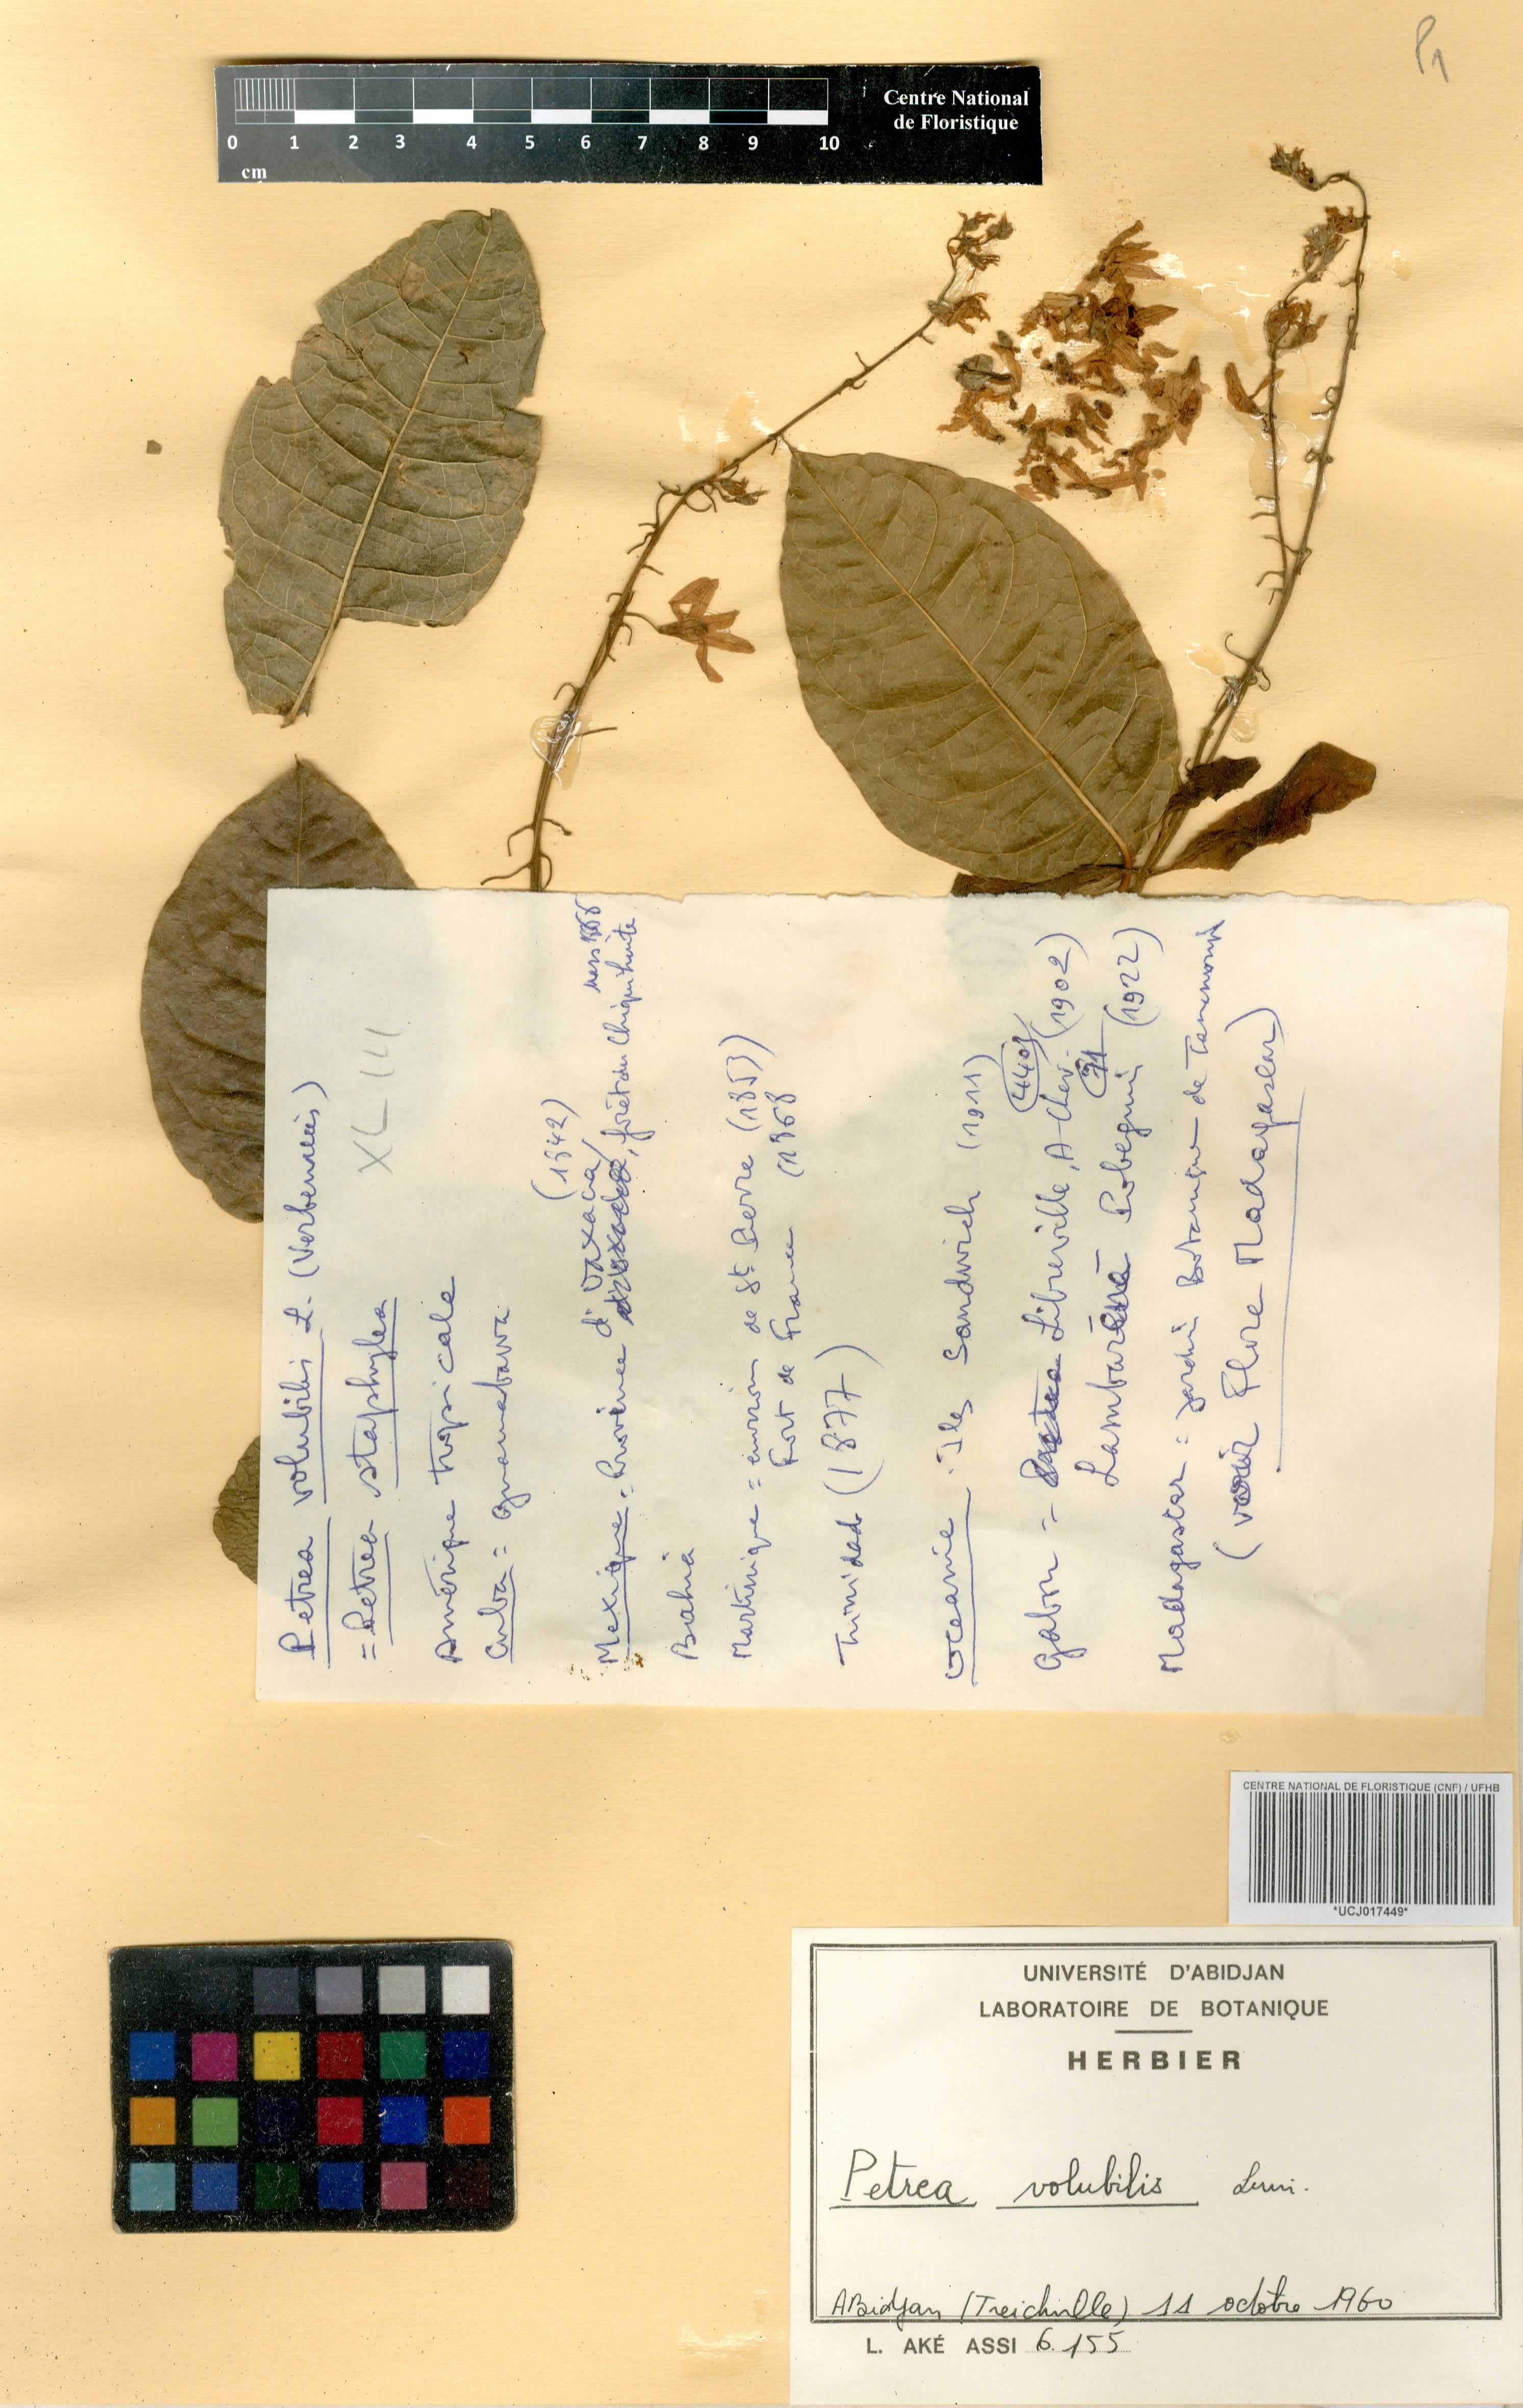 P1
Centre National
de Floristique
0 1 2 3 4 5 6 7 8 9 10
cm
Petrea volubilis L. (Verbenacées)
= Petrea staphylea
XL III
Amérique tropicale
Cuba = guanabava
(1842)
Mexique = Province d' Oaxaca, forêt du Chiquihuite
Mars 1866
Bahia
Martinique = environs de St Pierre (1853)
Fort de France (1868)
Trinidad (1877)
Océanie - Iles Sandwich (1911)
Gabon = Libreville, A-Chev. (1902)
4401
Lambaréné Pobeguin (1922)
71
Madagascar = Jardin Botanique de Tananarive
(voir Flore Madagascar)
CENTRE NATIONAL DE FLORISTIQUE (CNF) / UFHB
*UCJ017449*
UNIVERSITÉ D'ABIDJAN
LABORATOIRE DE BOTANIQUE
HERBIER
Petrea volubilis Linn.
ABidjan (Treichville) 11 octobre 1960
L. AKÉ ASSI 6.155